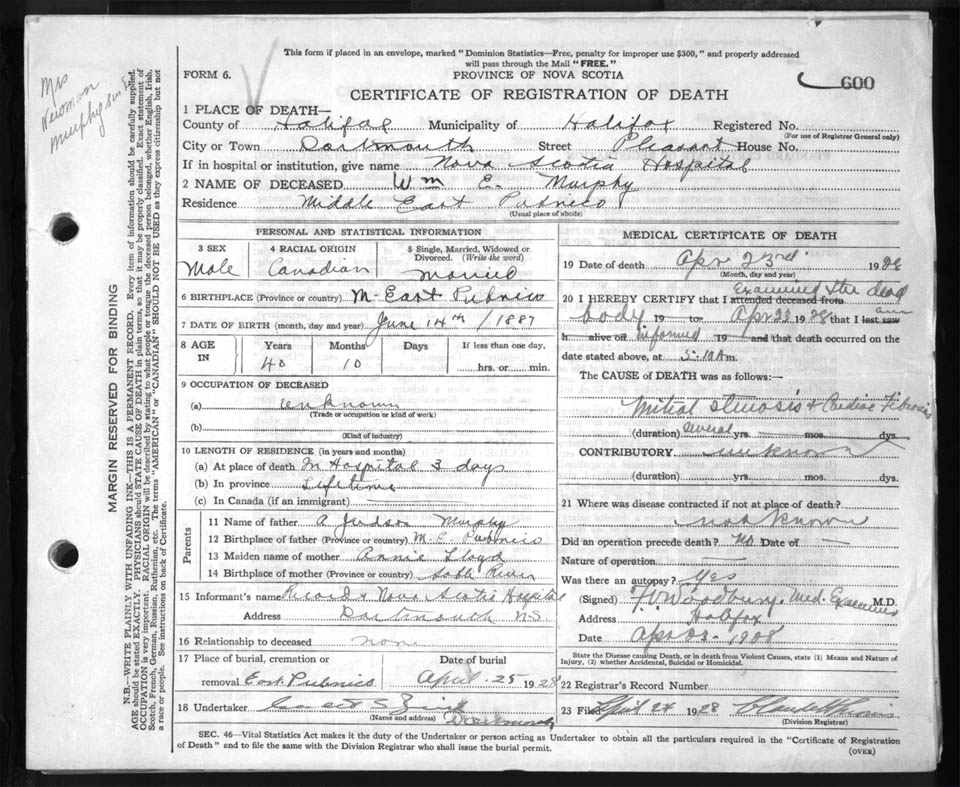 This form if placed in an envelope, marked "Dominion Statistics—Free, penalty for improper use $300," and properly addressed
will pass through the Mail "FREE."
FORM 6.
PROVINCE OF NOVA SCOTIA
600
CERTIFICATE OF REGISTRATION OF DEATH
Mrs
Murphy
MARGIN RESERVED FOR BINDING
N.B.—WRITE PLAINLY WITH UNFADING INK—THIS IS A PERMANENT RECORD. Every item of information should be carefully supplied.
AGE should be stated EXACTLY. PHYSICIANS should STATE CAUSE OF DEATH in plain terms, so that it may be properly classified. Exact statement of
OCCUPATION is very important. RACIAL ORIGIN will be described by stating to what people or tongue the deceased person belonged, whether English, Irish,
Scotch, French, German, Russian, Ruthenian, etc. The terms "AMERICAN" or "CANADIAN" SHOULD NOT BE USED as they express citizenship but not
a race or people. See instructions on back of Certificate.
1 PLACE OF DEATH—
County of Halifax Municipality of Halifax Registered No.
(For use of Registrar General only)
City or Town Dartmouth Street Pleasant House No.
If in hospital or institution, give name Nova Scotia Hospital
2 NAME OF DECEASED Wm E. Murphy
Residence Middle East Pubnico
(Usual place of abode)
PERSONAL AND STATISTICAL INFORMATION
3 SEX 4 RACIAL ORIGIN 5 Single, Married, Widowed or
Divorced. (Write the word)
Male Canadian Married
6 BIRTHPLACE (Province or country) M- East Pubnico
7 DATE OF BIRTH (month, day and year) June 14th /1887
8 AGE IN Years Months Days If less than one day,
40 10 hrs. or min.
9 OCCUPATION OF DECEASED
(a) unknown
(Trade or occupation or kind of work)
(b)
(Kind of industry)
10 LENGTH OF RESIDENCE (in years and months)
(a) At place of death In Hospital 3 days
(b) In province Lifetime
(c) In Canada (if an immigrant)
Parents
11 Name of father A Judson Murphy
12 Birthplace of father (Province or country) M. E. Pubnico
13 Maiden name of mother Annie Lloyd
14 Birthplace of mother (Province or country) Sable River
15 Informant's name Record Nova Scotia Hospital
Address Dartmouth N.S.
16 Relationship to deceased none
17 Place of burial, cremation or Date of burial
removal East Pubnico April 25 1928
18 Undertaker
(Name and address) Dartmouth
MEDICAL CERTIFICATE OF DEATH
19 Date of death Apr 23rd 1928
(Month, day and year)
Examined the dead
20 I HEREBY CERTIFY that I attended deceased from
body 19 to Apr 23 1928 that I last saw am
h alive on informed 19 and that death occurred on the
date stated above, at 5-10 Am.
The CAUSE of DEATH was as follows:—
Mitral stenosis & Cardiac Fibrosis
(duration) several yrs. mos. dys.
CONTRIBUTORY unknown
(duration) yrs. mos. dys.
21 Where was disease contracted if not at place of death?
not known
Did an operation precede death? No Date of —
Nature of operation
Was there an autopsy? Yes
(Signed) Woodbury. Med. Examiner M.D.
Address Halifax
Date Apr 23. 1928
State the Disease causing Death, or in death from Violent Causes, state (1) Means and Nature of
Injury, (2) whether Accidental, Suicidal or Homicidal.
22 Registrar's Record Number
23 Filed April 24 1928
(Division Registrar)
SEC. 46—Vital Statistics Act makes it the duty of the Undertaker or person acting as Undertaker to obtain all the particulars required in the "Certificate of Registration
of Death" and to file the same with the Division Registrar who shall issue the burial permit.
(OVER)